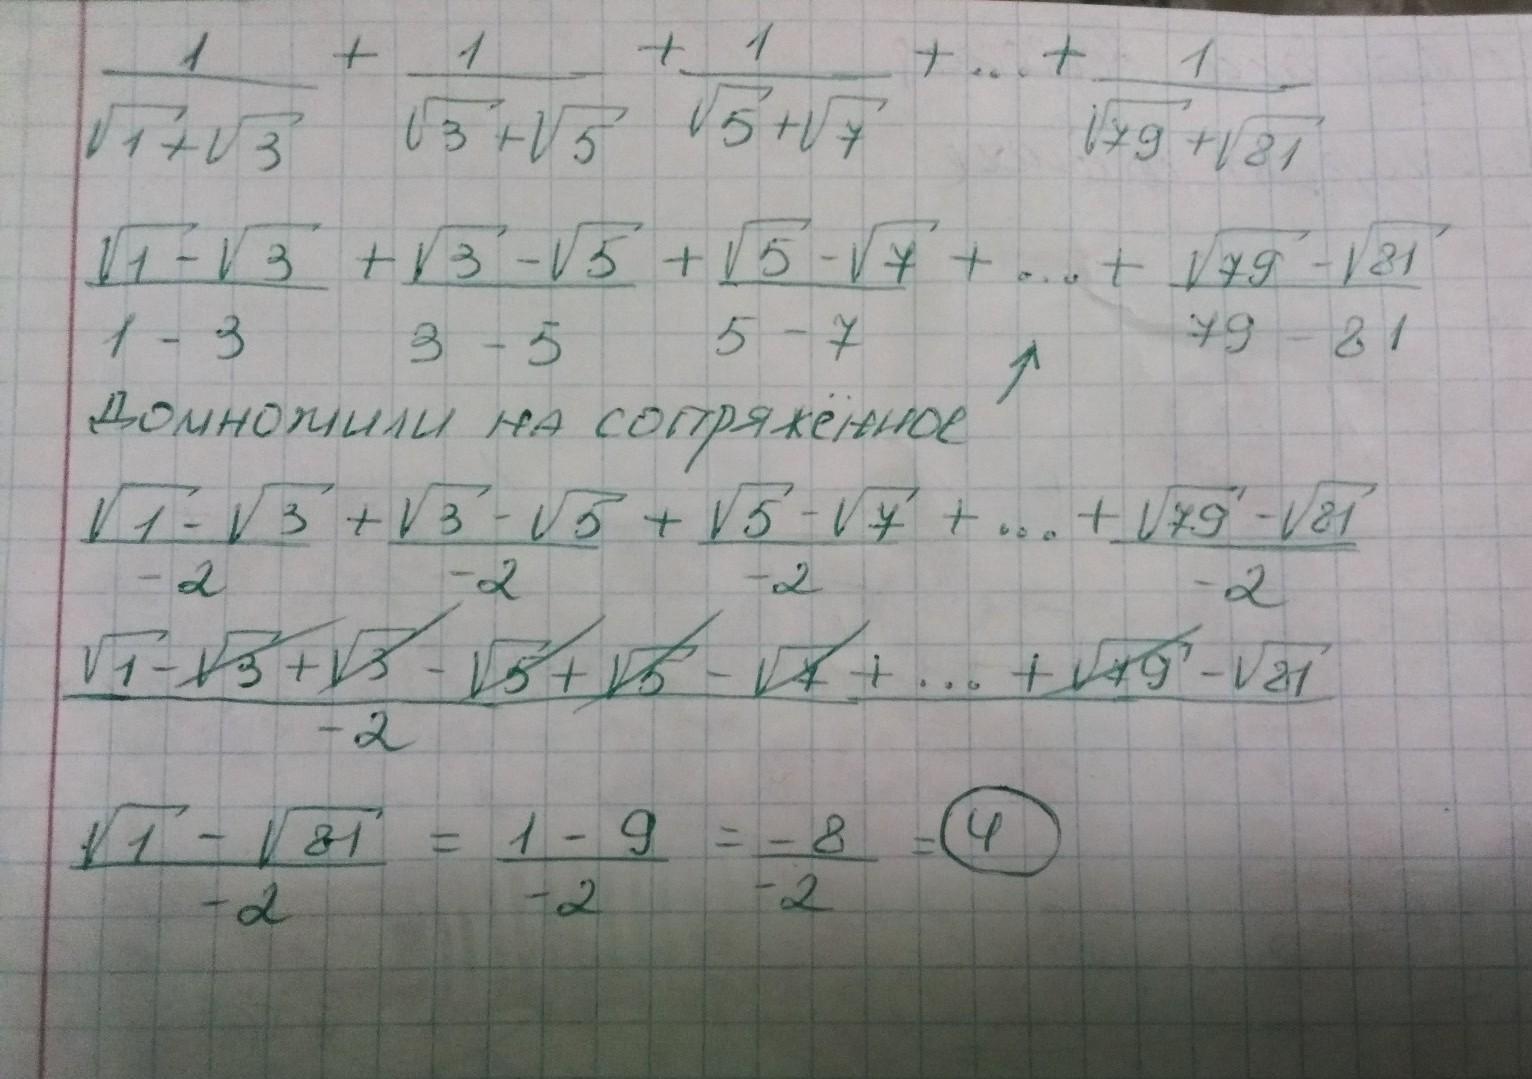 1/(√1+√3) + 1/(√3+√5) + 1/(√5+√7) + ... + 1/(√79+√81)
(√1-√3)/(1-3) + (√3-√5)/(3-5) + (√5-√7)/(5-7) + ... + (√79-√81)/(79-81)
Домножили на сопряжённое ↗
(√1-√3)/(-2) + (√3-√5)/(-2) + (√5-√7)/(-2) + ... + (√79-√81)/(-2)
(√1-√3+√3-√5+√5-√7+...+√79-√81)/(-2)
(√1-√81)/(-2) = (1-9)/(-2) = (-8)/(-2) = 4